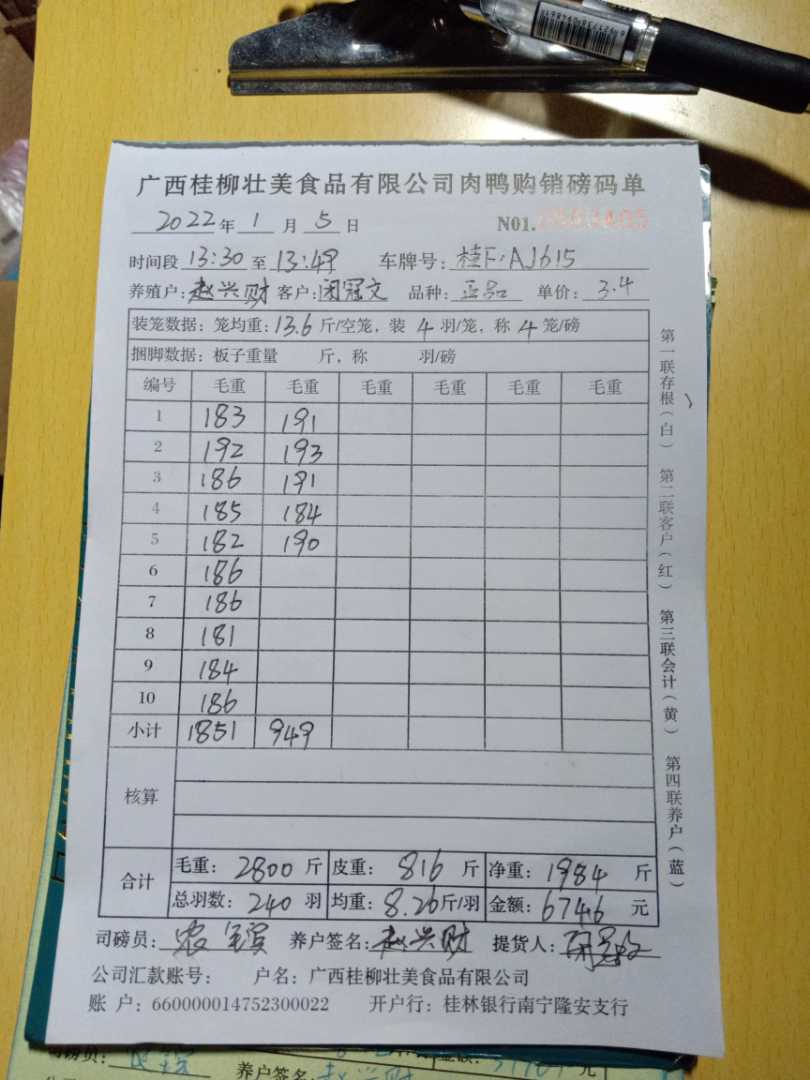 广西桂柳壮美食品有限公司肉鸭购销磅码单
2022年 1 月 5 日 N01.
时间段 13:30 至 13:49 车牌号: 桂F·AJ615
养殖户: 赵兴财 客户: 闭冠文 品种: 正品 单价: 3.4
装笼数据: 笼均重: 13.6 斤/空笼, 装 4 羽/笼, 称 4 笼/磅
捆脚数据: 板子重量 斤, 称 羽/磅
编号 毛重 毛重 毛重 毛重 毛重 毛重
1 183 191
2 192 193
3 186 191
4 185 184
5 182 190
6 186
7 186
8 181
9 184
10 186
小计 1851 949
核算
合计 毛重: 2800 斤 皮重: 816 斤 净重: 1984 斤
总羽数: 240 羽 均重: 8.26斤/羽 金额: 6746 元
司磅员: 养户签名: 赵兴财 提货人:
公司汇款账号: 户名: 广西桂柳壮美食品有限公司
账 户: 660000014752300022 开户行: 桂林银行南宁隆安支行
第一联存根(白) 第二联客户(红) 第三联会计(黄) 第四联养户(蓝)
司磅员: 养户签名: 赵兴财 元